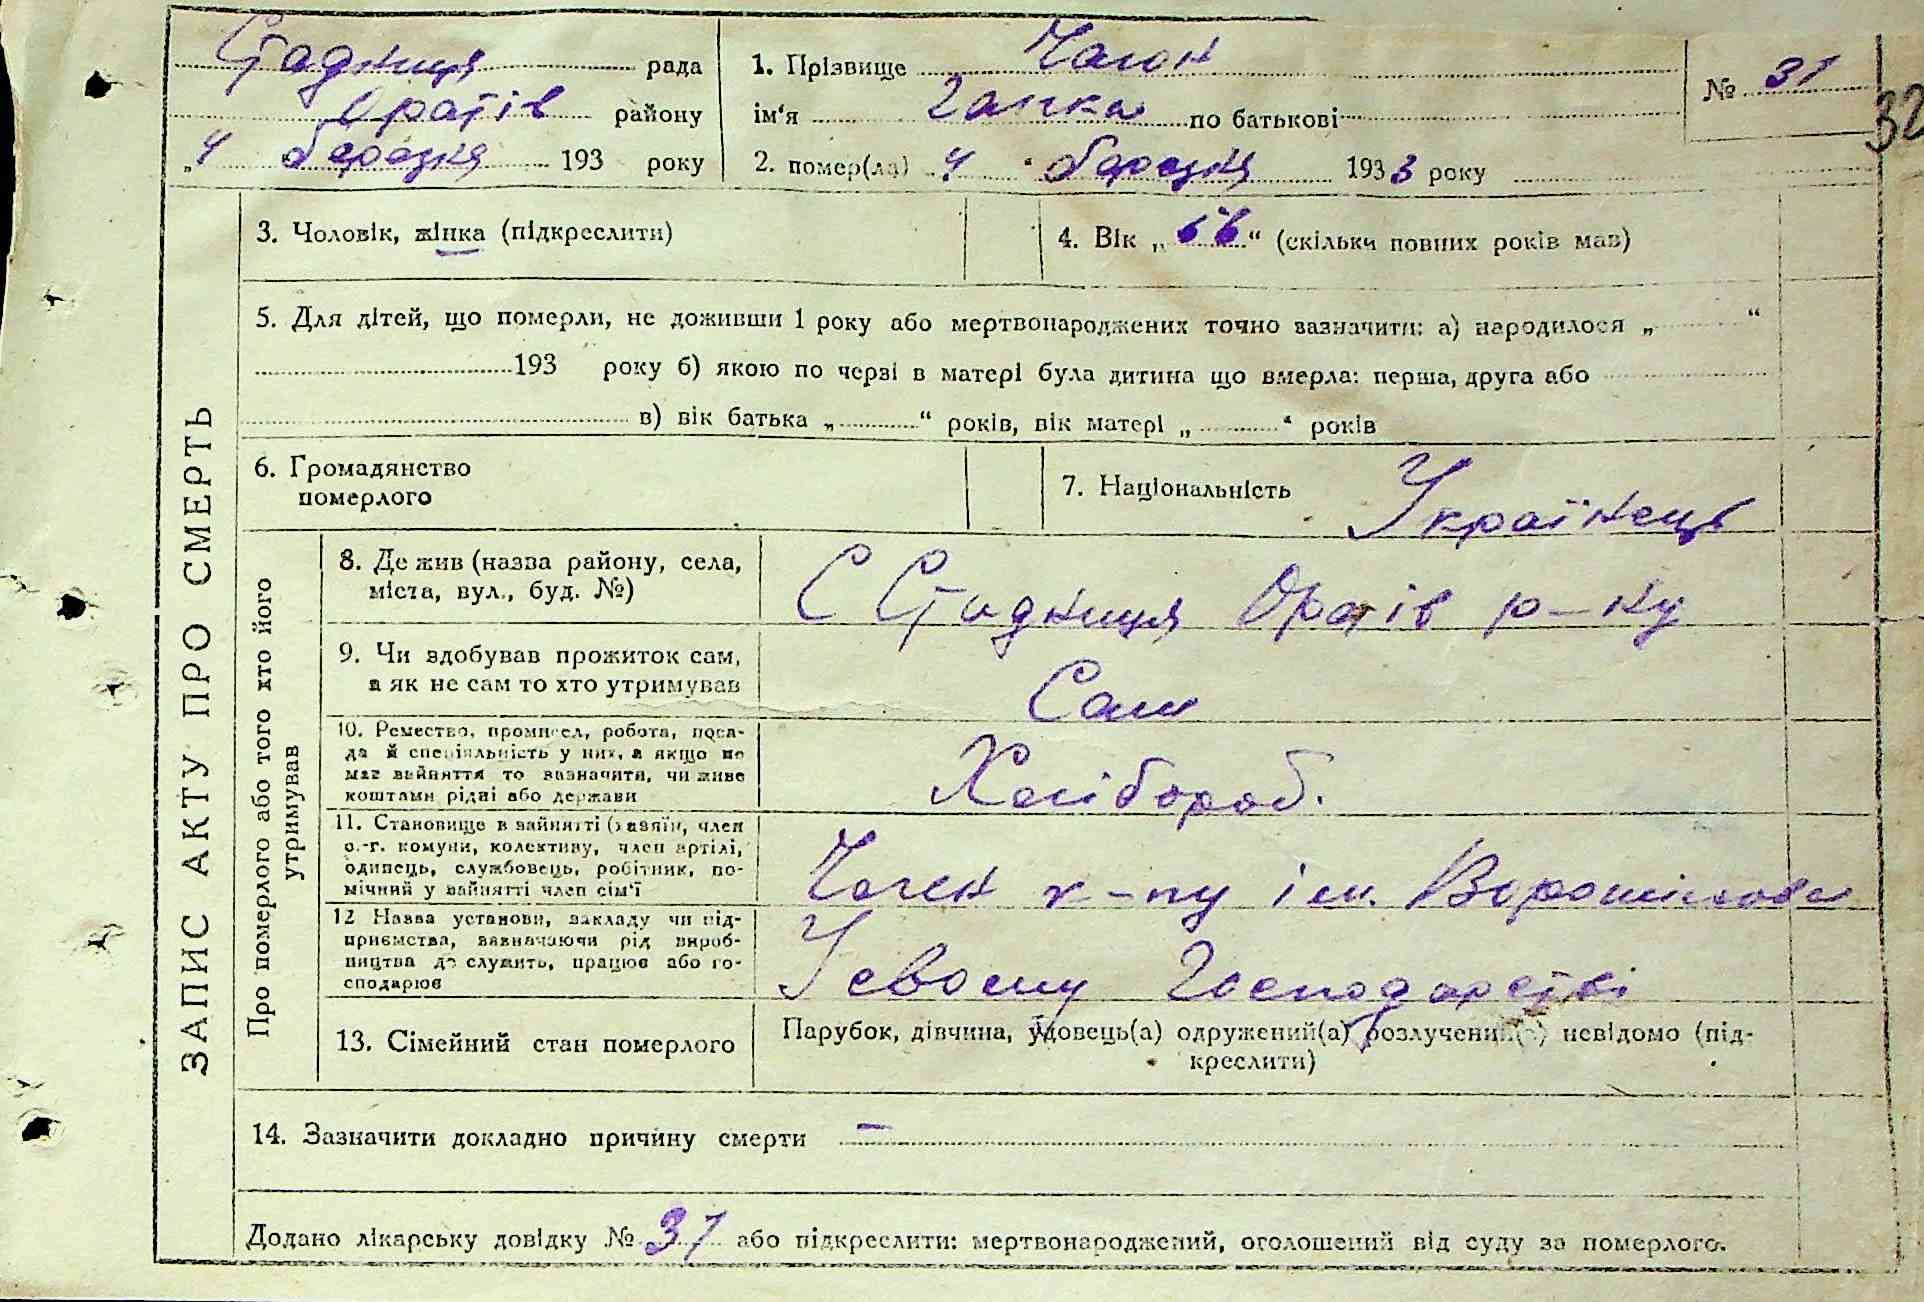 Стадниця рада
Оратів району
„4 березня 193 року
1. Прізвище Чагон
ім'я Гапка по батькові
2. помер(ла) 4 березня 1933 року
№ 31
32
ЗАПИС АКТУ ПРО СМЕРТЬ
3. Чоловік, жінка (підкреслити)
4. Вік „ “ (скільки повних років мав)
5. Для дітей, що померли, не доживши 1 року або мертвонароджених точно зазначити: а) народилося „ “
193 року б) якою по черзі в матері була дитина що вмерла: перша, друга або
в) вік батька „ “ років, вік матері „ “ років
6. Громадянство
померлого
7. Національність Українець
Про померлого або того хто його
утримував
8. Де жив (назва району, села,
міста, вул., буд. №)
С Стадниця Оратів р-ну
9. Чи здобував прожиток сам,
а як не сам то хто утримував
Сам
10. Ремество, промисел, робота, поса-
да й спеціяльність у них, а якщо не
має зайняття то зазначити, чи живе
коштами рідні або держави
Хлібороб.
11. Становище в зайнятті (хазяїн, член
с.-г. комуни, колективу, член артілі,
одинець, службовець, робітник, по-
мічний у зайнятті член сім'ї
Член к-пу ім. Ворошилова
12 Назва установи, закладу чи під-
приємства, зазначаючи рід вироб-
ництва де служить, працює або го-
сподарює
У своєму Господарстві
13. Сімейний стан померлого
Парубок, дівчина, удовець(а) одружений(а) розлучений(а) невідомо (під-
креслити)
14. Зазначити докладно причину смерти —
Додано лікарську довідку № 31 або підкреслити: мертвонароджений, оголошений від суду за померлого.